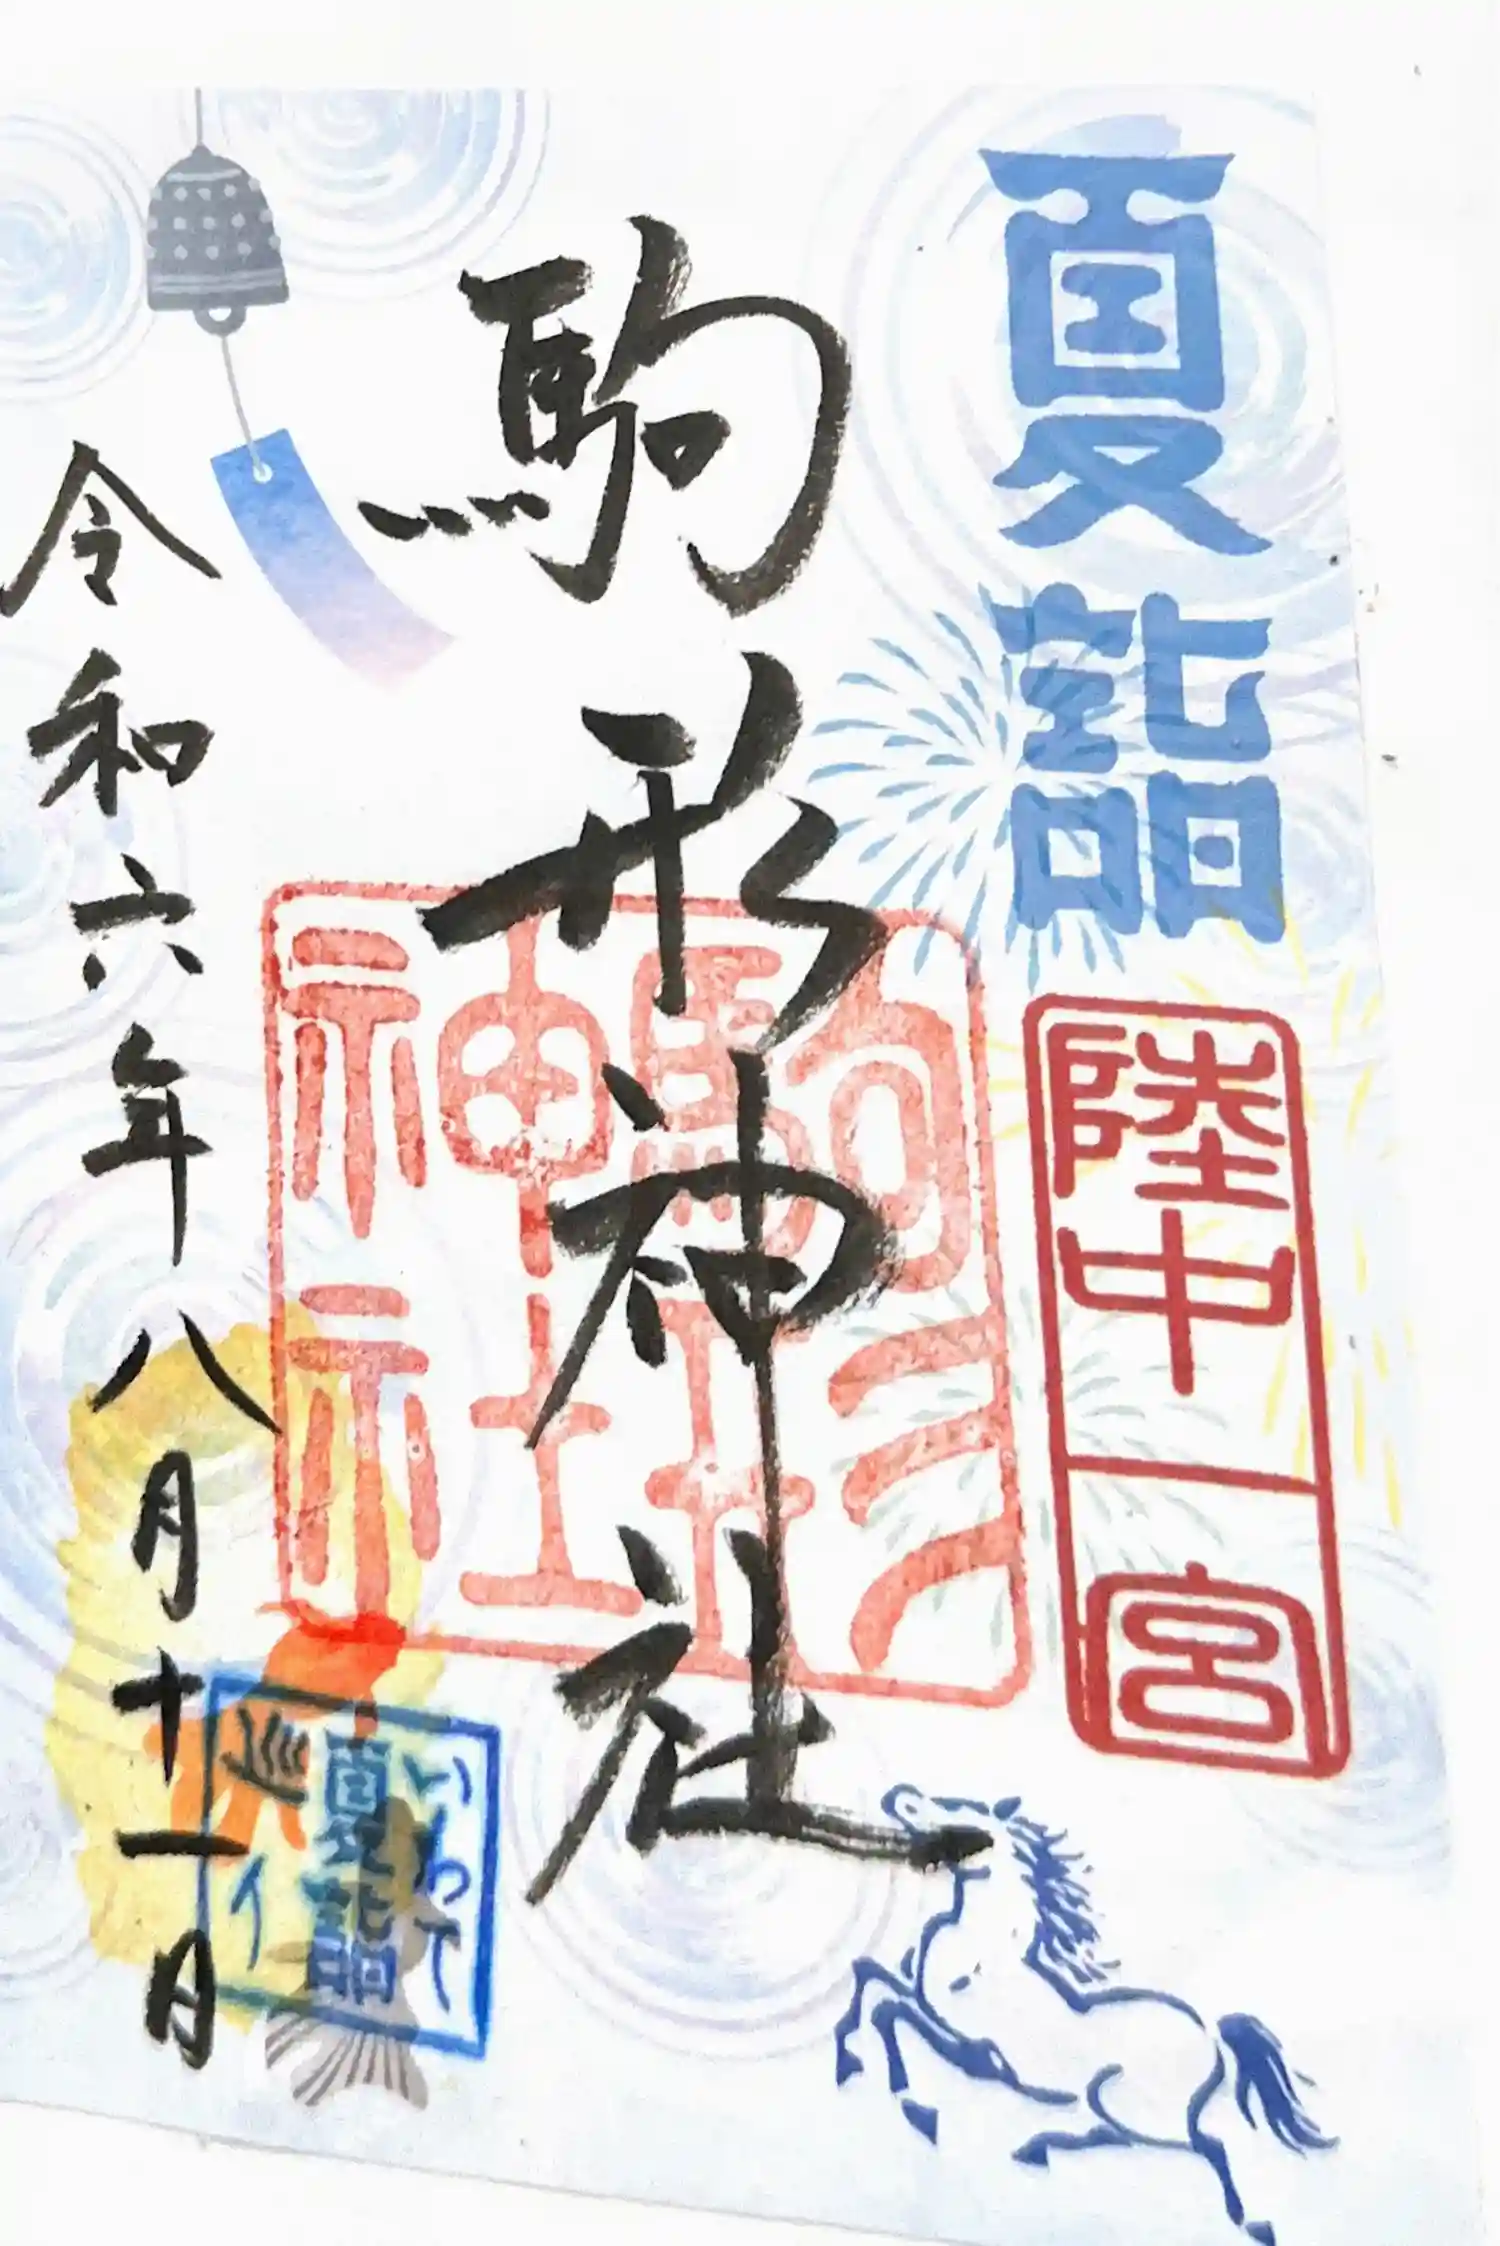 夏詣
陸中一宮
駒形神社
駒形神社
令和六年八月十一日
いわて
夏詣
巡イ